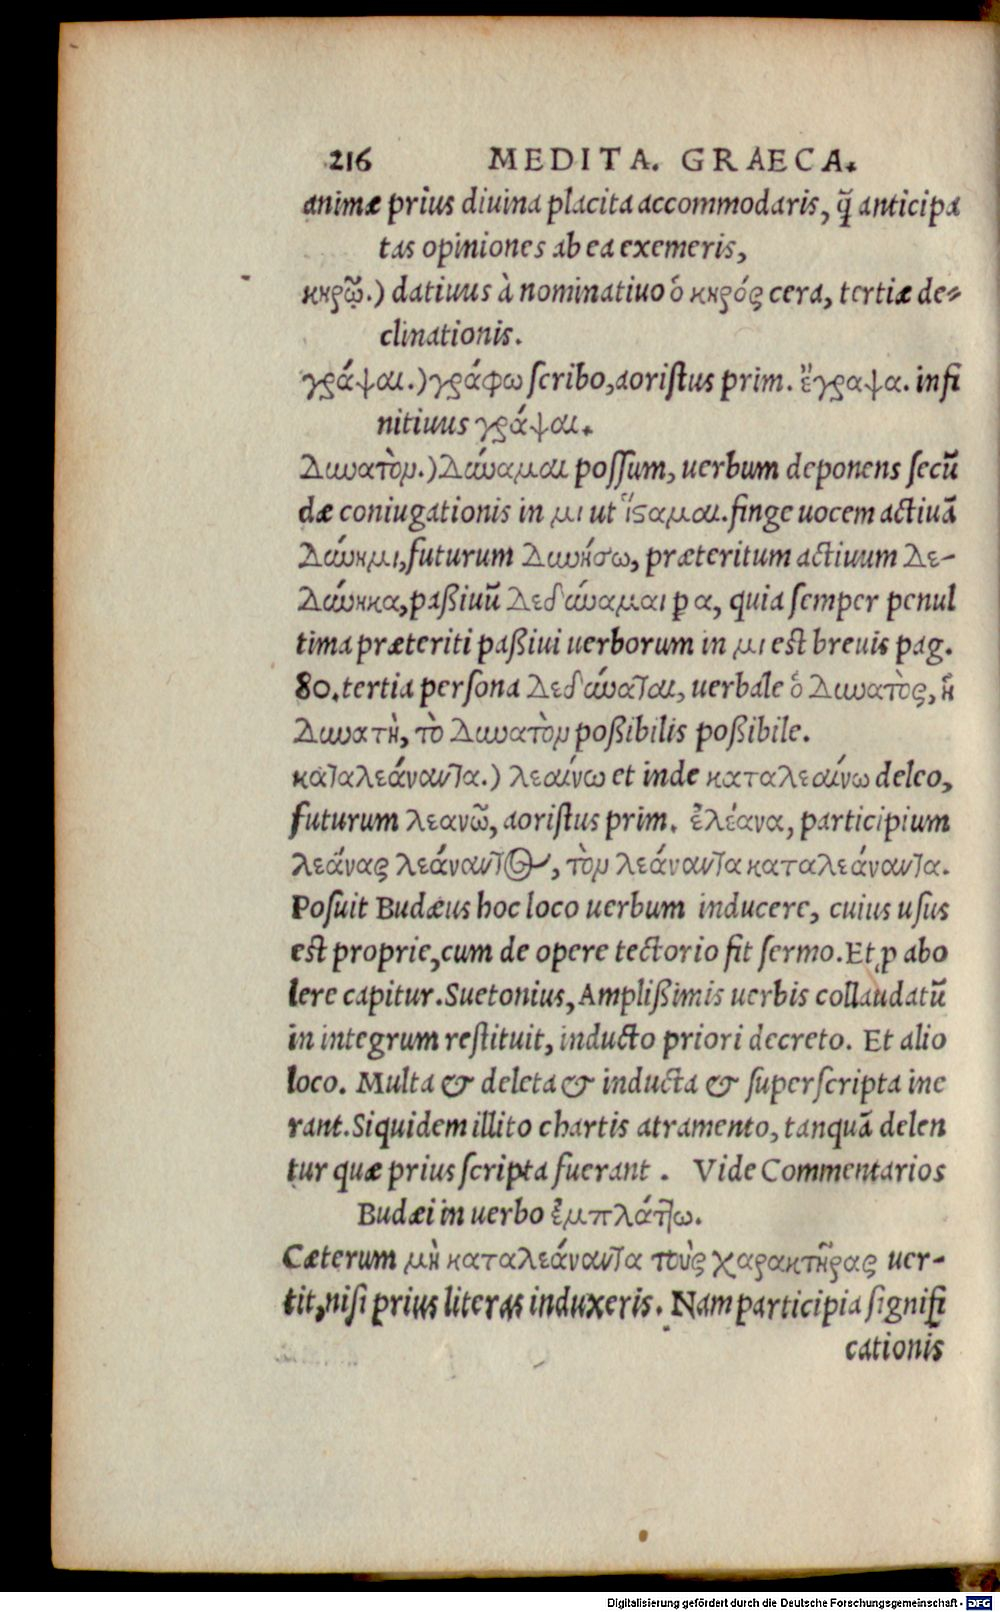 216 MEDITA. GRAECA.
animæ prius diuina placita accommodaris, q̃ anticipa
tas opiniones ab ea exemeris,
κηρῷ.) datiuus à nominatiuo ὁ κηρός cera, tertiæ de⸗
clinationis.
γράψαι.) γράφω scribo, aoristus prim. ἔγραψα. infi
nitiuus γράψαι.
Δυνατὸν.) Δύναμαι possum, uerbum deponens secũ
dæ coniugationis in μι ut ἵςαμαι. finge uocem actiuã
Δύνημι, futurum Δυνήσω, præteritum actiuum Δε-
Δύνηκα, paßiuũ Δεδύναμαι ꝑ α, quia semper penul
tima præteriti paßiui uerborum in μι est breuis pag.
80. tertia persona Δεδύναται, uerbale ὁ Δυνατὸς, ἡ
Δυνατὴ, τὸ Δυνατὸν poßibilis poßibile.
καταλεάναντα.) λεαίνω et inde καταλεαίνω deleo,
futurum λεανῶ, aoristus prim. ἐλέανα, participium
λεάνας λεάναντος, τὸν λεάναντα καταλεάναντα.
Posuit Budæus hoc loco uerbum inducere, cuius usus
est proprie, cum de opere tectorio fit sermo. Et ꝓ abo
lere capitur. Suetonius, Amplißimis uerbis collaudatũ
in integrum restituit, inducto priori decreto. Et alio
loco. Multa & deleta & inducta & superscripta ine
rant. Siquidem illito chartis atramento, tanquã delen
tur quæ prius scripta fuerant. Vide Commentarios
Budæi in uerbo ἐμπλάττω.
Cæterum μὴ καταλεάναντα τοὺς χαρακτῆρας uer-
tit, nisi prius literas induxeris. Nam participia signifi
cationis
Digitalisierung gefördert durch die Deutsche Forschungsgemeinschaft - DFG